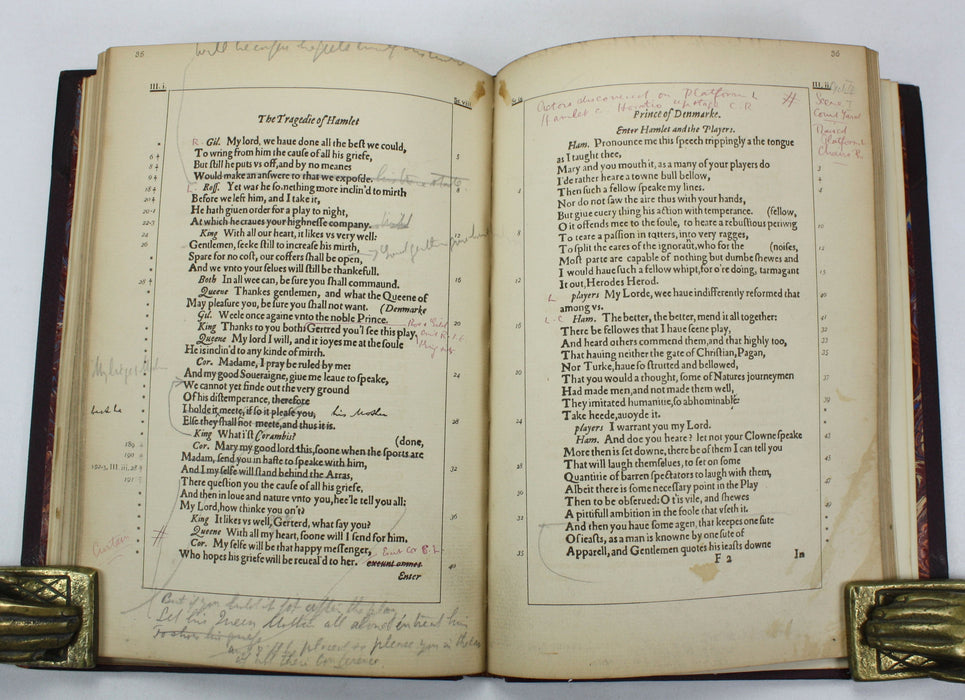 35
III. i.
Sc viii
The Tragedie of Hamlet
R. Gil. My lord, we haue done all the best we could,
6 ‡ To wring from him the cause of all his griefe, 5
8 ‡ But still he puts vs off, and by no meanes
9 ‡ Would make an answere to that we exposde.
18 ‡ Ross. Yet was he something more inclin'd to mirth 8
20 ‡ Before we left him, and I take it,
20-1 He hath giuen order for a play to night,
22-3 At which he craues your highnesse company.
24 King With all our heart, it likes vs very well: 12
26 Gentlemen, seeke still to increase his mirth,
Spare for no cost, our coffers shall be open,
And we vnto your selues will still be thankefull.
28 ‡ Both In all wee can, be sure you shall commaund. 16
Queene Thankes gentlemen, and what the Queene of
May pleasure you, be sure you shall not want. (Denmarke
Gil. Weele once againe vnto the noble Prince.
King Thanks to you both: Gertred you'l see this play, 20
Queene My lord I will, and it ioyes me at the soule
He is inclin'd to any kinde of mirth.
Cor. Madame, I pray be ruled by me:
And my good Soueraigne, giue me leaue to speake, 24
We cannot yet finde out the very ground
Of his distemperance, therefore
I holde it meete, if so it please you, his Mother
Else they shall not meete, and thus it is. 28
King What i'st Corambis? (done,
189 Cor. Mary my good lord this, soone when the sports are
190 Madam, send you in haste to speake with him,
192-3, III. iii. 28 ‡ And I my selfe will stand behind the Arras, 32
191 There question you the cause of all his griefe,
And then in loue and nature vnto you, hee'le tell you all:
My Lord, how thinke you on't?
King It likes vs well, Gerterd, what say you? 36
Queene With all my heart, soone will I send for him,
Curtain # Cor. My selfe will be that happy messenger,
Who hopes his griefe will be reueal'd to her. exeunt omnes
Enter 40
But if you hold it fit after the play
Let his Queen Mother all alone intreat him
36
III. ii.
Sc ix
Actors discovered on Platform L
Hamlet C Horatio upstage C.R #
Scene I
Court Yard
Raised
Platform L
Chairs R.
Prince of Denmarke.
Enter Hamlet and the Players.
Ham. Pronounce me this speech trippingly a the tongue
as I taught thee,
Mary and you mouth it, as a many of your players do 3
I'de rather heare a towne bull bellow, 4
4 Then such a fellow speake my lines.
Nor do not saw the aire thus with your hands,
But giue euery thing his action with temperance. (fellow,
O it offends mee to the soule, to heare a rebustious periwig 10
8 To teare a passion in totters, into very ragges,
To split the eares of the ignorant, who for the (noises,
Most parte are capable of nothing but dumbe shewes and
I would haue such a fellow whipt, for o're doing, tarmagant 15
12 It out, Herodes Herod.
L players My Lorde, wee haue indifferently reformed that 40
among vs.
L.C Ham. The better, the better, mend it all together: 41
16 There be fellowes that I haue seene play, 32
And heard others commend them, and that highly too, 33
That hauing neither the gate of Christian, Pagan, 35
Nor Turke, haue so strutted and bellowed,
20 That you would a thought, some of Natures journeymen 37
Had made men, and not made them well,
They imitated humanitie, so abhominable:
Take heede, auoyde it.
24 players I warrant you my Lord.
Ham. And doe you heare? let not your Clowne speake 43
More then is set downe, there be of them I can tell you
That will laugh themselues, to set on some 45
28 Quantitie of barren spectators to laugh with them,
Albeit there is some necessary point in the Play
Then to be obserued: O t'is vile, and shewes
A pittifull ambition in the foole that vseth it.
And then you haue some agen, that keepes one sute
Of ieasts, as a man is knowne by one sute of
35 Apparell, and Gentlemen quotes his ieasts downe
F 2 In